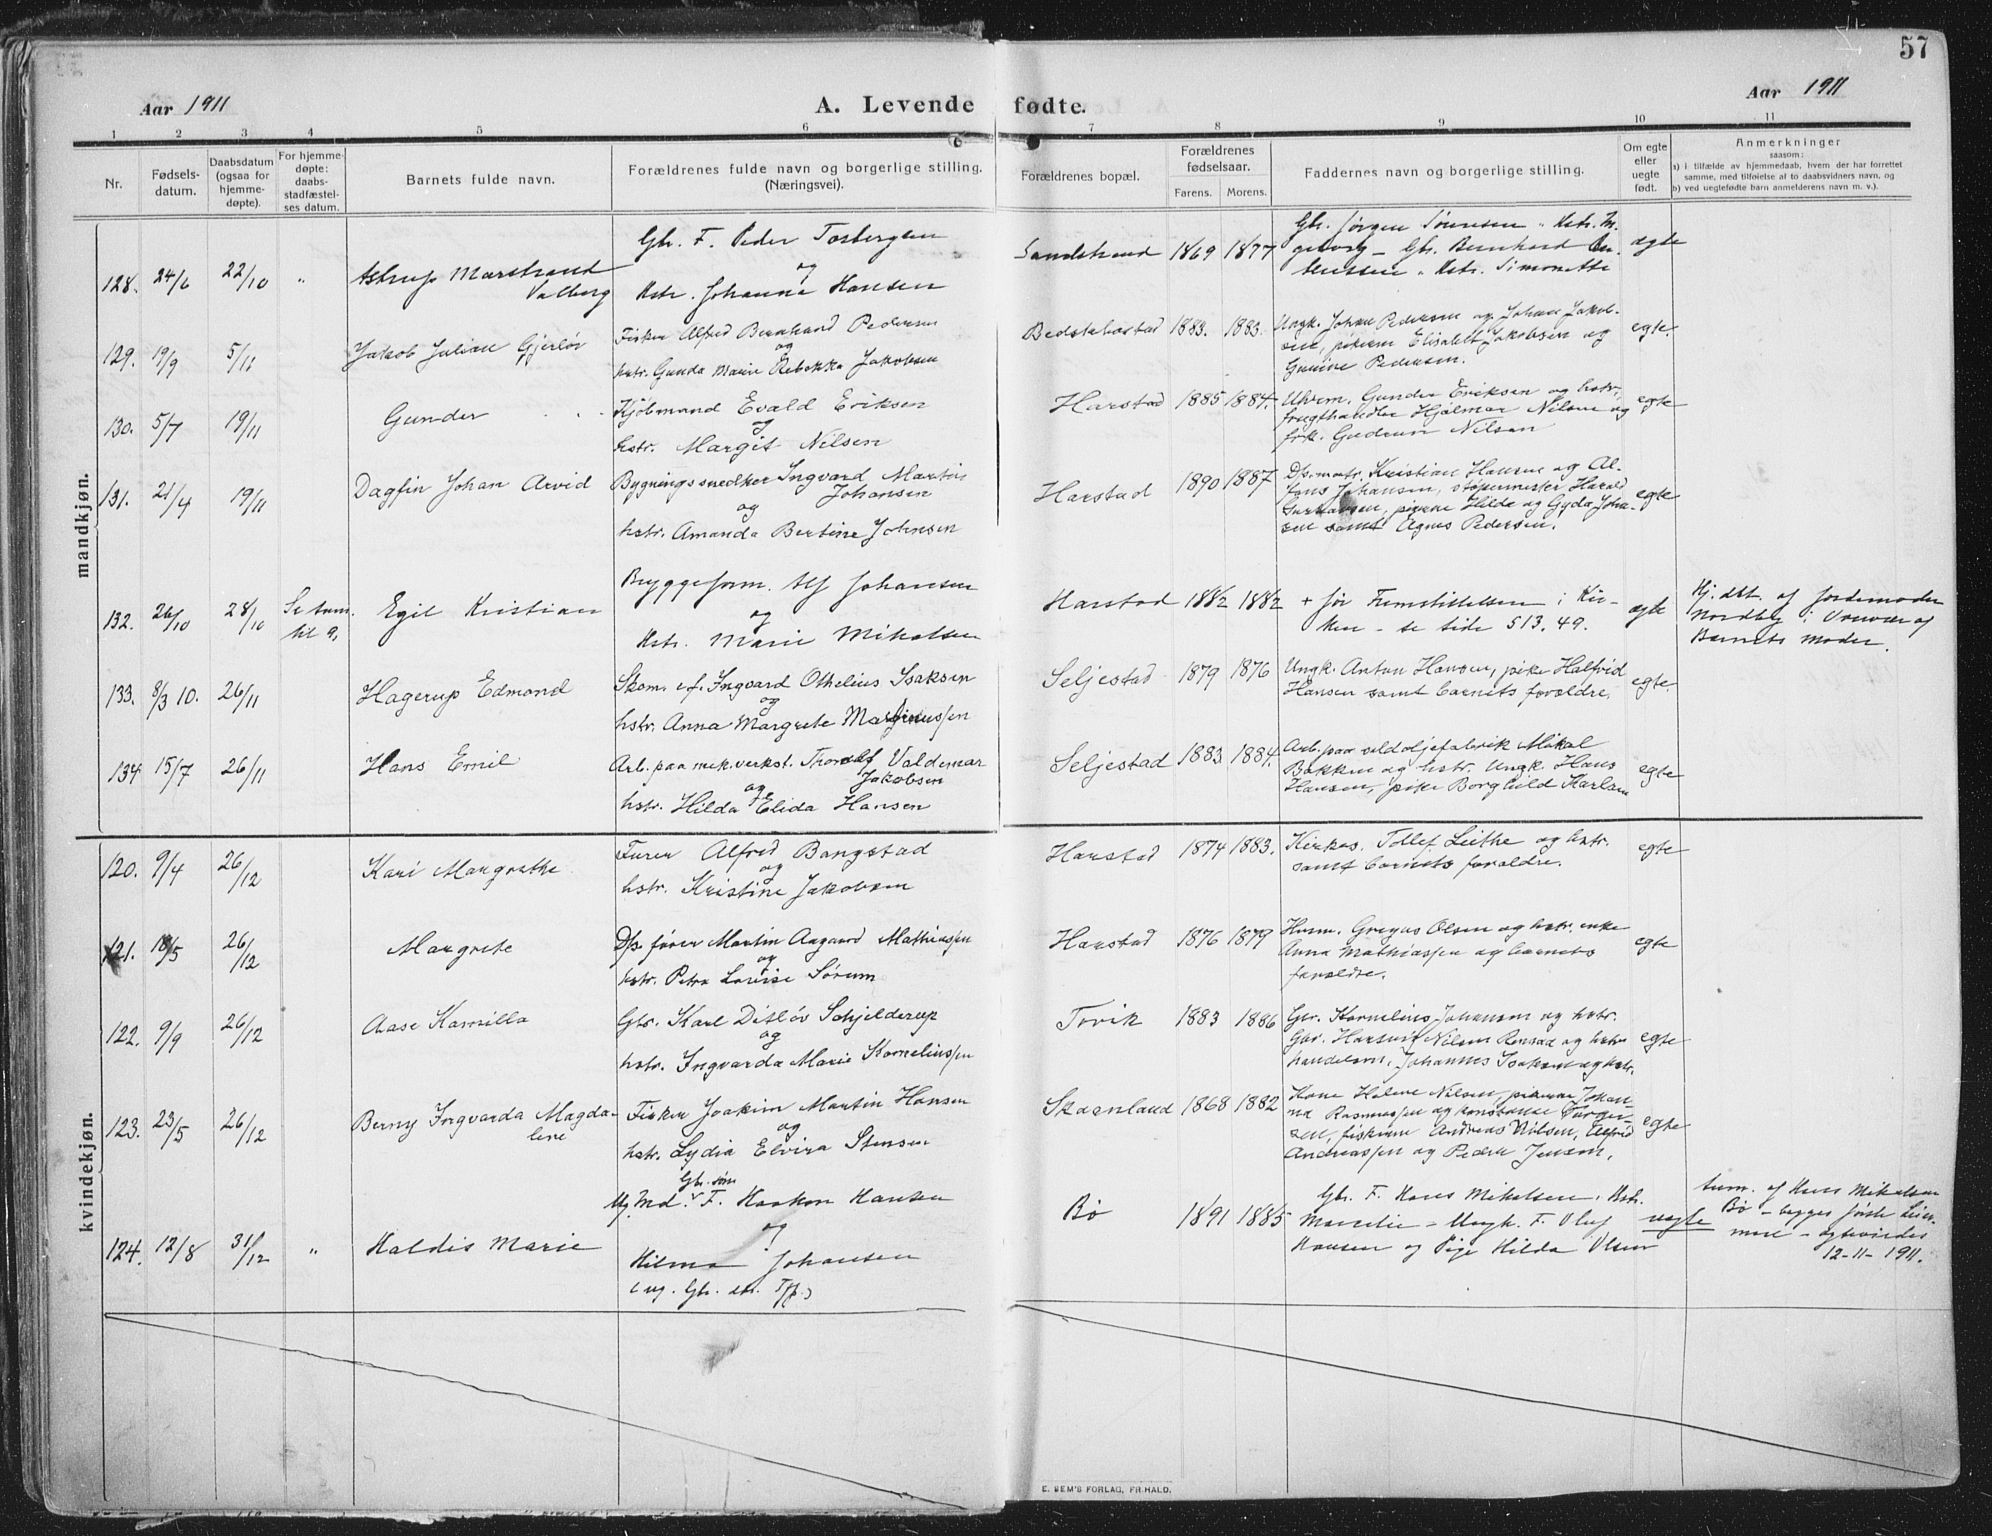 57
Aar 1911
A. Levende fødte.
Aar 1911
1 2 3 4 5 6 7 8 9 10 11
Nr.
Fødsels-
datum.
Daabsdatum
(ogsaa for
hjemme-
døpte).
For hjemme-
døpte:
daabs-
stadfæstel-
ses datum.
Barnets fulde navn.
Forældrenes fulde navn og borgerlige stilling.
(Næringsvei).
Forældrenes bopæl.
Forældrenes
fødselsaar.
Farens. Morens.
Faddernes navn og borgerlige stilling.
Om egte
eller
uegte
født.
Anmerkninger
saasom:
a) i tilfælde av hjemmedaab, hvem der har forrettet
samme, med tilføielse af to daabsvidners navn, og
b) ved uegtefødte barn anmelderens navn m. v.).
mandkjøn.
128. 24/6 22/10 "
Astrup Marstrand
Valberg
Gbr. F. Peder Torbergsen
og
Hstr. Johanna Hansen
Sandstrand 1869 1877
Gbr. Jørgen Sørensen
Gbr. Bernhard
Hstr. Simonette
egte
129. 19/9 5/11
Jakob Julian Gjerløv
Fisker Alfred Bernhard Pedersen
og
hstr. Gunda Marie Rebekka Jakobsen
1883. 1883.
Ungk. Johan Pedersen og Johan Jakob-
sen, pikerne Elisabet Jakobsen og
Pedersen.
egte.
130. 5/7 19/11
Gunder
Kjøbmand Evald Eriksen
og
hstr. Margit Nilsen
Harstad 1885 1884.
Uhrm. Gunder Eriksen og hstr.,
frugthandler Hjalmar Nilsen og
frk. Gudrun Nilsen
egte
131. 21/4 19/11
Dagfin Johan Arvid
Bygningssnedker Ingvard Martin
Johansen
og
hstr. Amanda Bertine Johnsen
Harstad 1890 1887
Dp.matr. Kristian Hansen og Al-
fons Johansen, støpermester Harald
pikerne Hilda og Gyda Johan-
sen samt Agnes Pedersen.
egte
132. 26/10 28/10
Se tom.
til 9,
Egil Kristian
Bryggeform. Alf Johansen
og
Hstr. Marie Mikalsen
Harstad 1882 1882
+ før Fremstillelsen i Kir-
ken – se side 513. 49.
egte
Hj. dbt. af Jordemoder
Nordby i Nærvær af
Barnets Moder.
133. 8/3 10. 26/11
Hagerup Edmond
Skom. e.f. Ingvard Othelius Isaksen
og
hstr. Anna Margrete Marjinussen
Seljestad 1879 1876
Ungk. Anton Hansen, pike Halfrid
Hansen samt barnets forældre.
egte.
134 15/7 26/11
Hans Emil
Arb. paa mek.verkst. Thoralf Valdemar
Jakobsen
og
hstr. Hilda Elida Hansen
Seljestad 1883 1884.
Arb. paa sildoljefabrik Mikal
Bakken og hstr. Ungk. Hans
Hansen, pike Borghild Karlsen
egte
kvindekjøn.
120. 9/4 26/12
Kari Margrethe
Furer Alfred Bangstad
og
hstr. Kristine Jakobsen
Harstad 1874 1883.
Kirkes. Tollef Leithe og hstr.
samt barnets forældre.
egte
121. 18/5 26/12
Margrete
Dp. fører Martin Aagaard Mathiassen
og
hstr. Petra Lovise Sørum
Harstad 1876 1879
Husm. Gregus Olsen og hstr. enke
Anna Mathiassen og barnets
forældre.
egte
122. 9/9 26/12
Aase Kamilla
Gbr. Karl Ditløv Schjelderup
og
hstr. Ingvarda Marie Korneliussen
Tovik 1883 1886
Gbr. Kornelius Johansen og hstr.
Gbr. Hartvig Nilsen Rensaa og hstr
handelsm. Johannes Isaksen og hstr.
egte
123. 23/5 26/12
Berny Ingvarda Magda-
lene
Fisker Joakim Martin Hansen
og
hstr. Lydia Elvira Stensen
Skaanland 1868 1882
Kone Helene Nilsen, pikerne Johan-
na Rasmussen og Konstanse Torger-
sen, fiskerne Andreas Nilsen, Alfred
Andreassen og Peder Jensen.
egte
124. 12/8 31/12 "
Haldis Marie
Gbr. søn
Ug. Md. F. Haakon Hansen
og
Hilma Johansen
(ug. Gbr. dtr. )
Bø 1891 1885
Gbr. F. Hans Mikalsen. Hstr.
Marselie – Ungk. F. Oluf
Hansen og Pige Hilda Olsen
uegte
anm. af Hans Mikalsen
Bø – begges første
12-11-1911.
E. SEM'S FORLAG, FR.HALD.